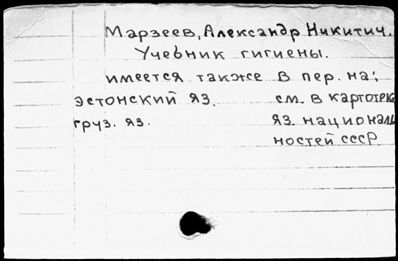 Марзеев, Александр Никитич.
Учебник гигиены.
имеется также в пер. на:
эстонский яз. см. в картотека
груз. яз. яз. националь
ностей СССР.